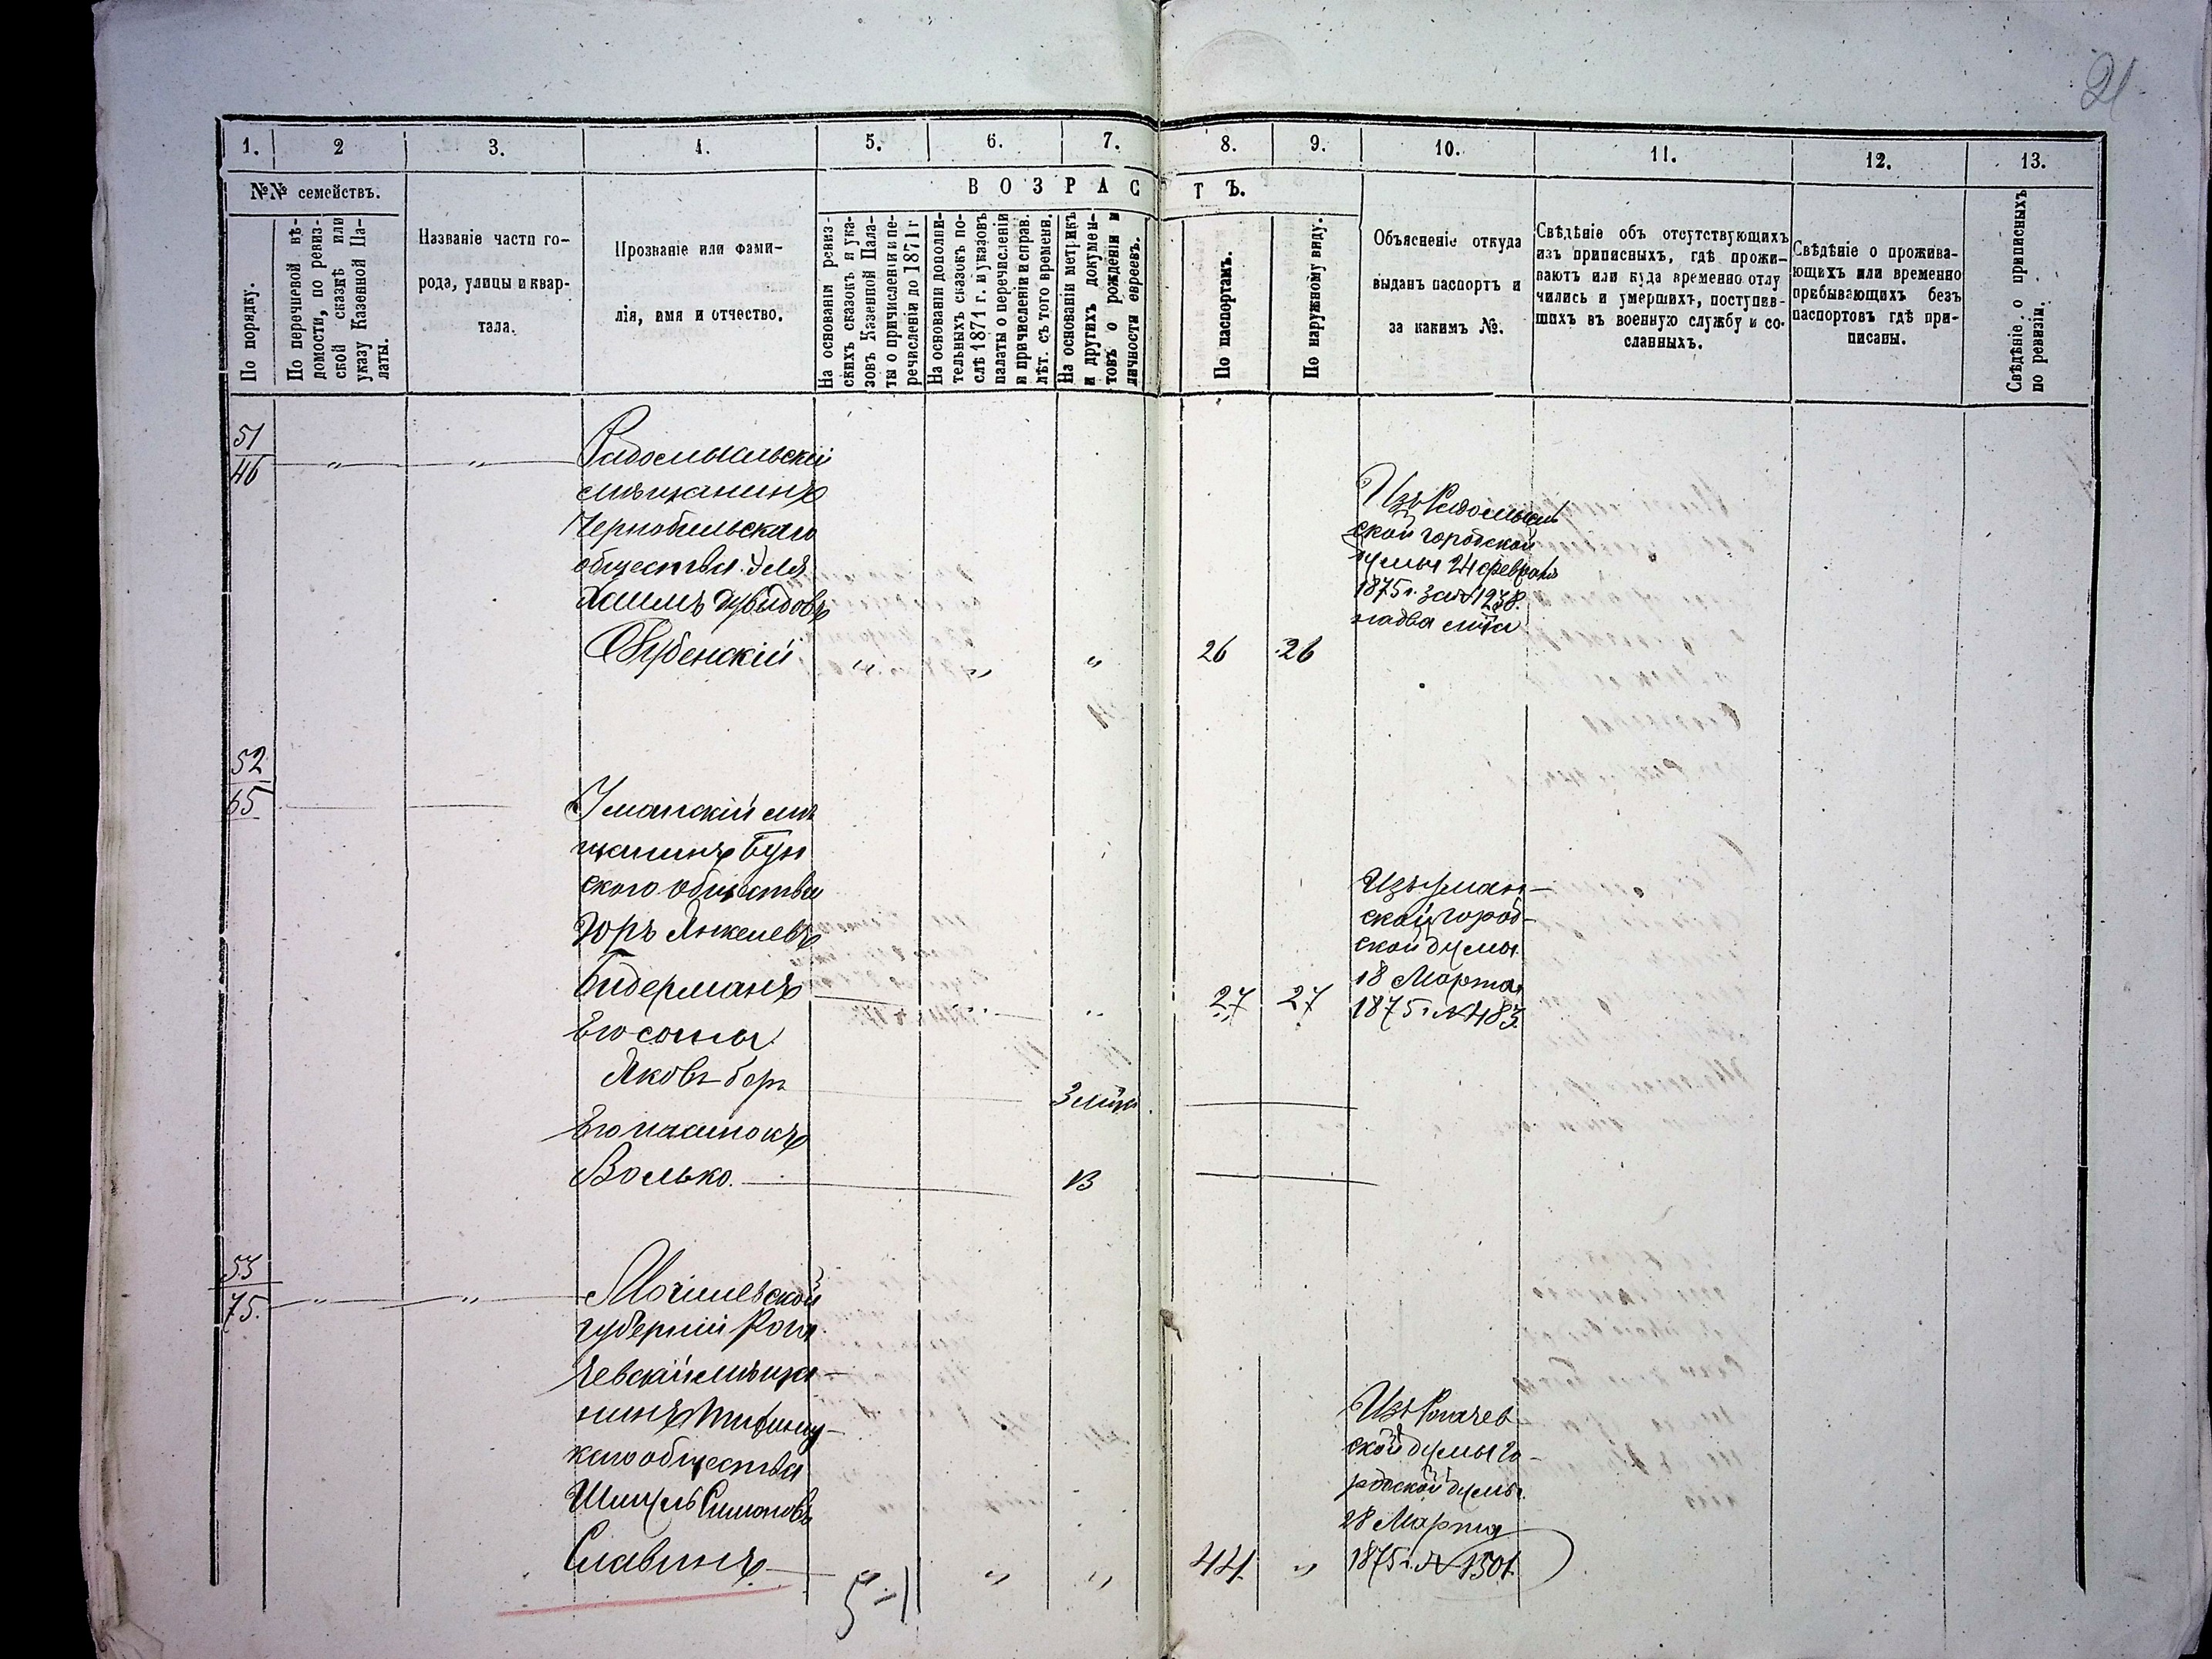 21
1. 2 3. 4. 5. 6. 7. 8. 9. 10. 11. 12. 13.
№№ семействъ.
ВОЗРАСТЪ.
По порядку.
По перечневой вѣ-
домости, по ревиз-
ской сказкѣ или
указу Казенной Па-
латы.
Названіе части го-
рода, улицы и квар-
тала.
Прозваніе или фами-
лія, имя и отчество.
На основаніи ревиз-
скихъ сказокъ и ука-
зовъ Казенной Пала-
ты о причисленіи и пе-
речисленіи до 1871 г
На основаніи дополни-
тельныхъ сказокъ по-
слѣ 1871 г. и указовъ
палаты о перечисленіи
и причисленіи и справ.
лѣт. съ того времени.
На основаніи метрикъ
и другихъ докумен-
товъ о рожденіи и
личности евреевъ.
По паспортамъ.
По наружному виду.
Объясненіе откуда
выданъ паспортъ и
за какимъ №.
Свѣдѣніе объ отсутствующихъ
изъ приписныхъ, гдѣ прожи-
ваютъ или куда временно отлу
чились и умершихъ, поступив-
шихъ въ военную службу и со-
сланныхъ.
Свѣдѣніе о прожива-
ющихъ или временно
пребывающихъ безъ
паспортовъ гдѣ при-
писаны.
Свѣдѣніе о приписныхъ
по ревизіи.
51
46 " "
Радомысльскій
мѣщанинъ
Чернобыльскаго
общества
Хаимъ Дувидовъ
Дубенскій " " " 26 26
Изъ Радомысль
ской городской
думы 24 февраля
1875 г. за № 1238.
на два мѣс
52
65
Уманскій мѣ
щанинъ Бук
ского общества
Юръ Янкелевъ
Бидерманъ " " 27 27
Его сыны
Яковъ-беръ 3 мѣс.
Его
Волько. 13
Изъ Уман-
ской город-
ской думы
18 Марта
1875 г. № 483.
53
75. " "
Могилевской
губерніи Рога
чевскій мѣща-
нинъ
каго общества
Шмуль Симоновъ
Славинъ " " " 44. "
Изъ Рогачев
ской думы го-
родской думы.
28 Марта
1875 г. № 1501.
5-1